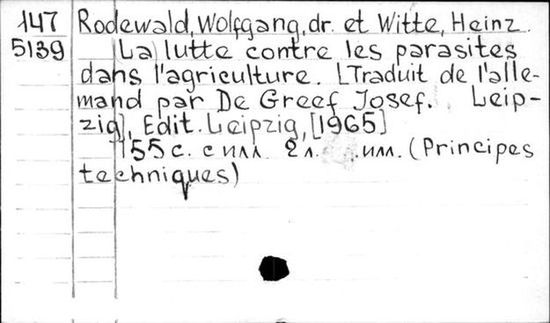 147
5139
Rodewald, Wolfgang, dr. et Witte, Heinz.
La lutte contre les parasites
dans l'agriculture. [Traduit de l'alle-
mand par De Greef Josef. Leip-
zig], Edit. Leipzig, [1965]
155 с. с илл. 2 л. илл. (Principes
techniques)